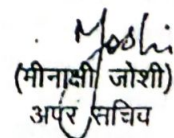 Joshi
(मीनाक्षी जोशी)
अपर सचिव